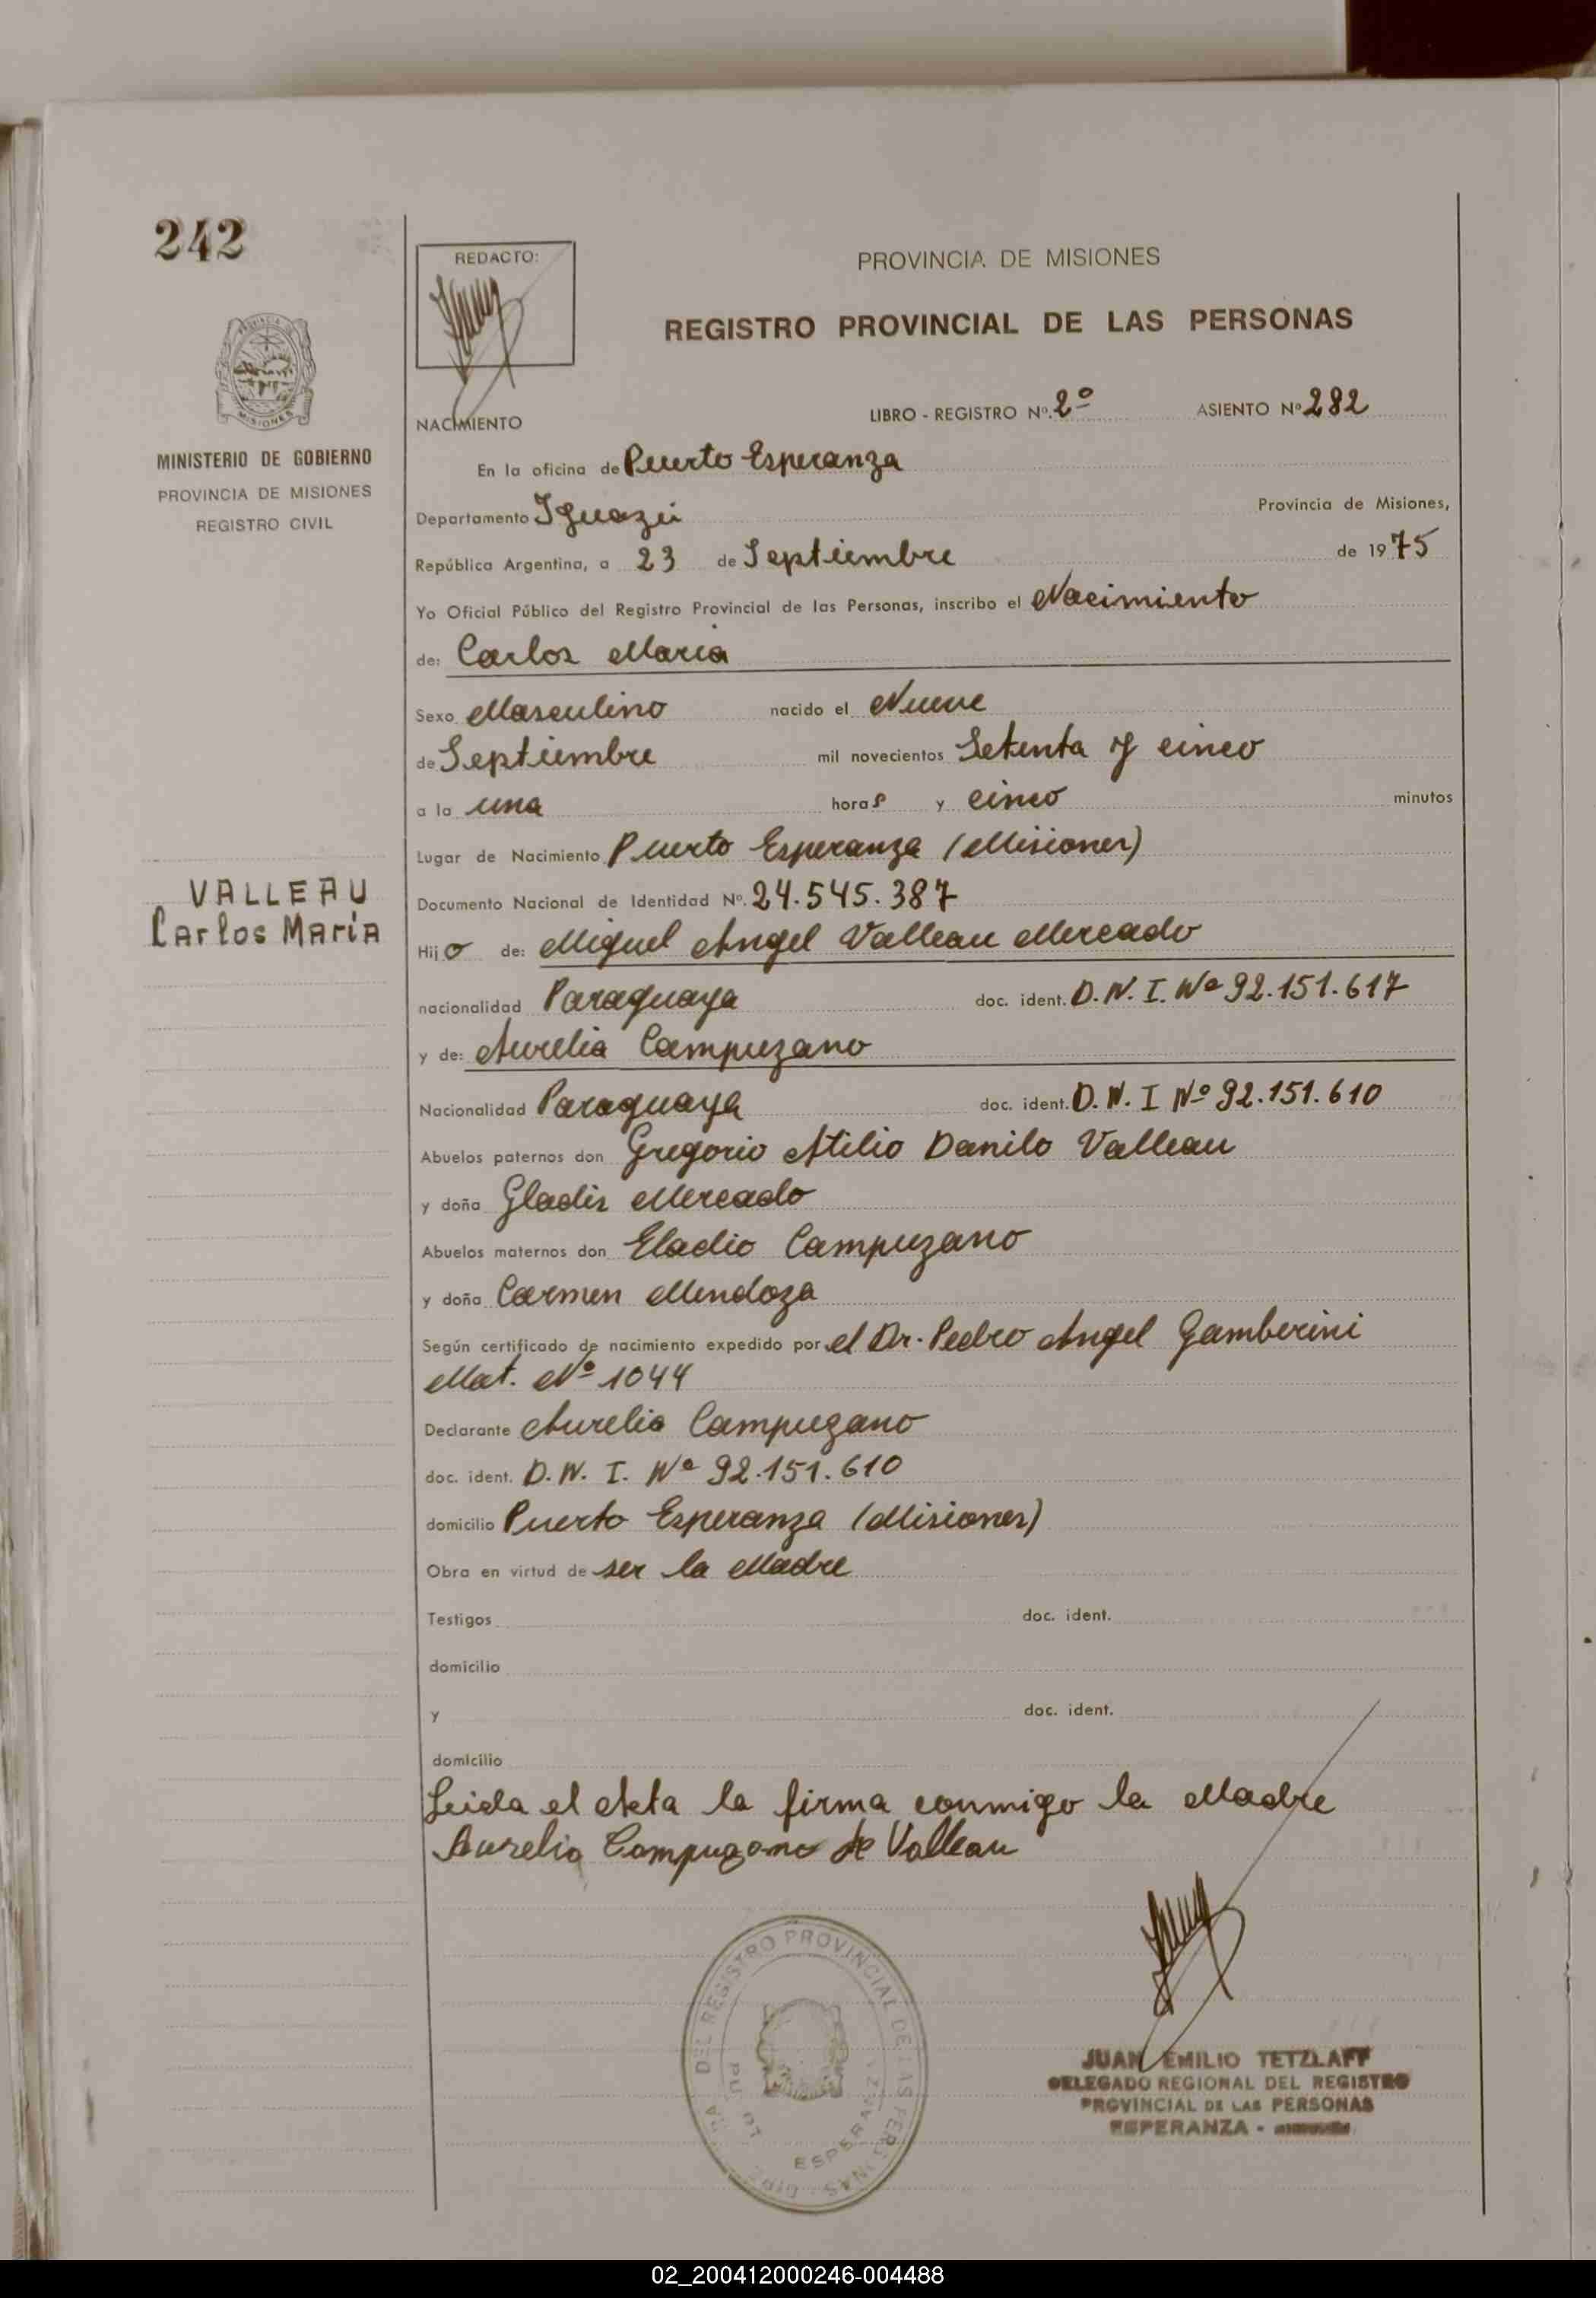 242
REDACTO:
PROVINCIA DE MISIONES
REGISTRO PROVINCIAL DE LAS PERSONAS
MINISTERIO DE GOBIERNO
PROVINCIA DE MISIONES
REGISTRO CIVIL
NACIMIENTO
LIBRO - REGISTRO Nº. 2º ASIENTO Nº 282
En la oficina de Puerto Esperanza
Departamento Iguazú Provincia de Misiones,
República Argentina, a 23 de Septiembre de 1975
Yo Oficial Público del Registro Provincial de las Personas, inscribo el Nacimiento
de: Carlos María
Sexo Masculino nacido el Nueve
de Septiembre mil novecientos Setenta y cinco
a la una horas y cinco minutos
Lugar de Nacimiento Puerto Esperanza (Misiones)
VALLEAU
Carlos María
Documento Nacional de Identidad Nº. 24.545.387
Hijo de: Miguel Angel Valleau Mercado
nacionalidad Paraguaya doc. ident. D.N.I. Nº 92.151.617
y de: Aurelia Campuzano
Nacionalidad Paraguaya doc. ident. D.N.I Nº 92.151.610
Abuelos paternos don Gregorio Atilio Danilo Valleau
y doña Gladis Mercado
Abuelos maternos don Eladio Campuzano
y doña Carmen Mendoza
Según certificado de nacimiento expedido por el Dr. Pedro Angel Gamberini
Mat. Nº 1044
Declarante Aurelia Campuzano
doc. ident. D.N.I. Nº 92.151.610
domicilio Puerto Esperanza (Misiones)
Obra en virtud de ser la Madre
Testigos doc. ident.
domicilio
y doc. ident.
domicilio
Leida el Acta la firma conmigo la Madre
Aurelia Campuzano de Valleau
DEL REGISTRO PROVINCIAL DE LAS PERSONAS
ESPERANZA
JUAN EMILIO TETZLAFF
DELEGADO REGIONAL DEL REGISTRO
PROVINCIAL DE LAS PERSONAS
ESPERANZA -
02_200412000246-004488